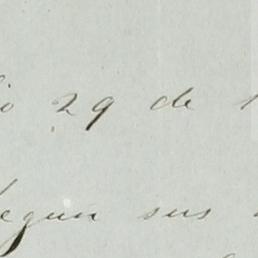 29 de
segun sus